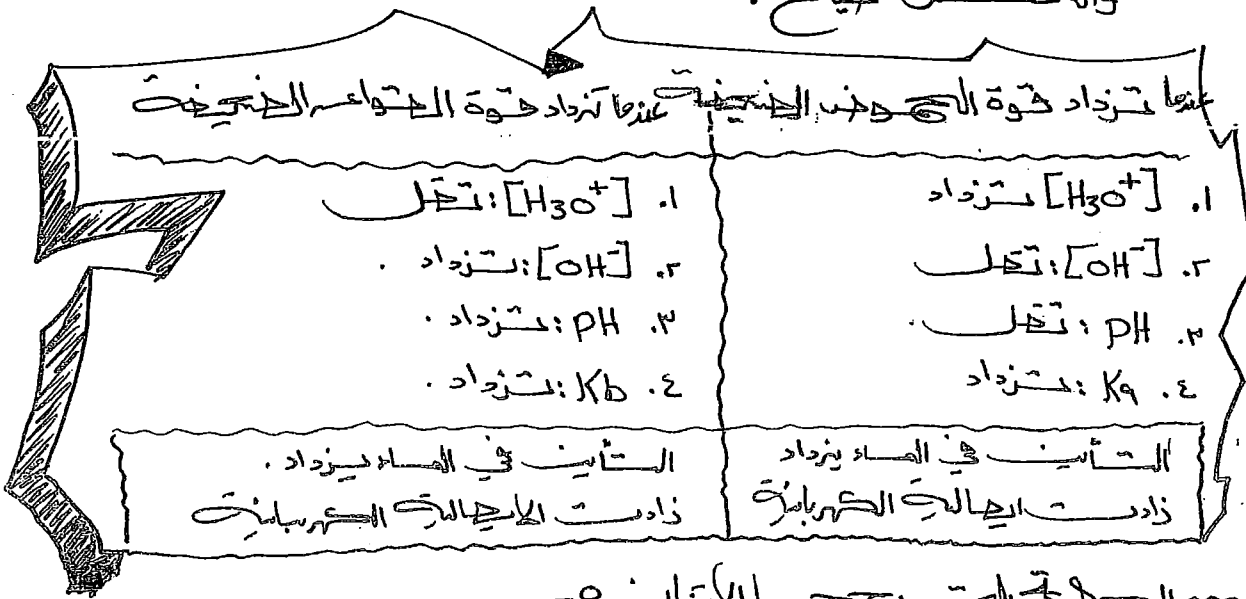 والعكس صحيح .
عندما تزداد قوة الحموض الضعيفة
١. [H3O+] تزداد
٢. [OH-] : تقل
٣. PH : تقل .
٤. Ka : تزداد
التأين في الماء يزداد
زادت ايصالية الكهربائية
عندما تزداد قوة القواعد الضعيفة
١. [H3O+] : تقل
٢. [OH-] : تزداد .
٣. PH : تزداد .
٤. Kb : تزداد .
التأين في الماء يزداد .
زادت الايصالية الكهربائية